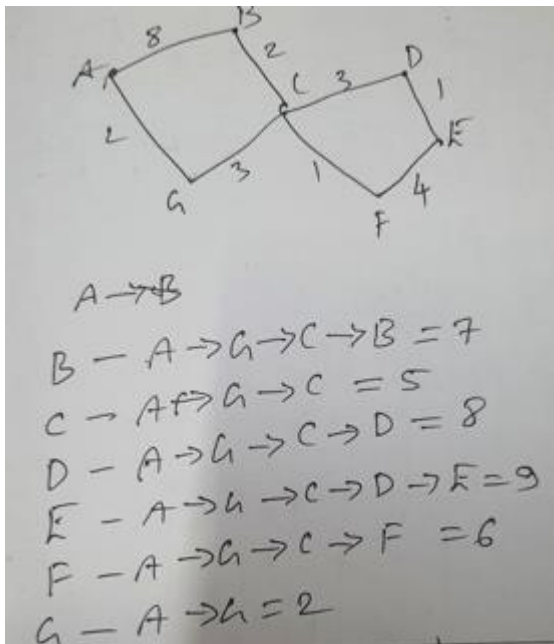 B
8
2
A
C
3
D
1
2
E
3
1
4
G
F
A → B
B — A → G → C → B = 7
C — A → G → C = 5
D — A → G → C → D = 8
E — A → G → C → D → E = 9
F — A → G → C → F = 6
G — A → G = 2